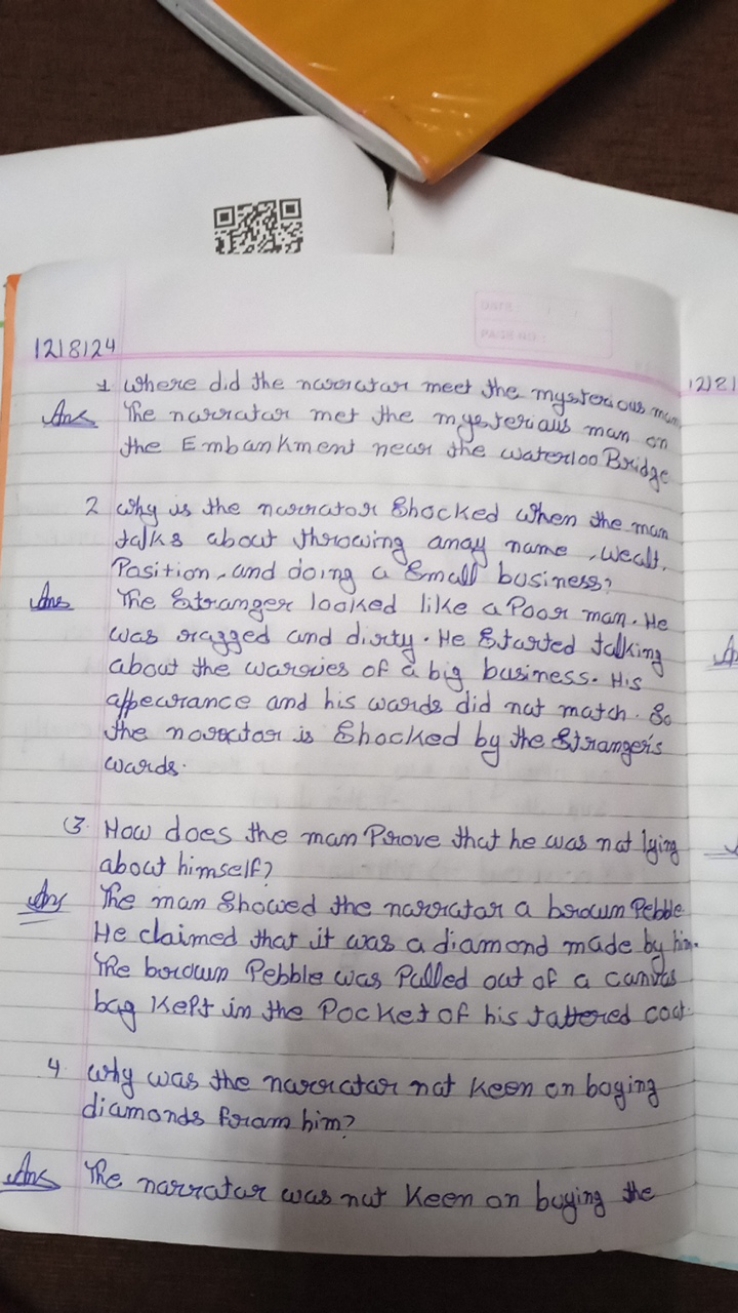 DATE
PAGE NO
12/8/24
1 Where did the narrator meet the mysterious man
Ans The narrator met the mysterious man on
the Embankment near the Waterloo Bridge
2 Why is the narrator Shocked When the man
talks about throwing away name, Wealt,
Position, and doing a Small business?
Ans The Stranger looked like a Poor man. He
was ragged and dirty. He Started talking
about the warories of a big business. His
appearance and his wards did not match. So
the narrator is Shocked by the Stranger's
wards.
(3. How does the man Prove that he was not lying
about himself?
Ans The man Showed the narrator a brown Pebble
He claimed that it was a diamond made by him.
The brown Pebble was Pulled out of a canvas
bag Kept in the Pocket of his tattered coat.
4. Why was the narrator not Keen on boying
diamonds from him?
Ans The narrator was not Keen on buying the
12/8/